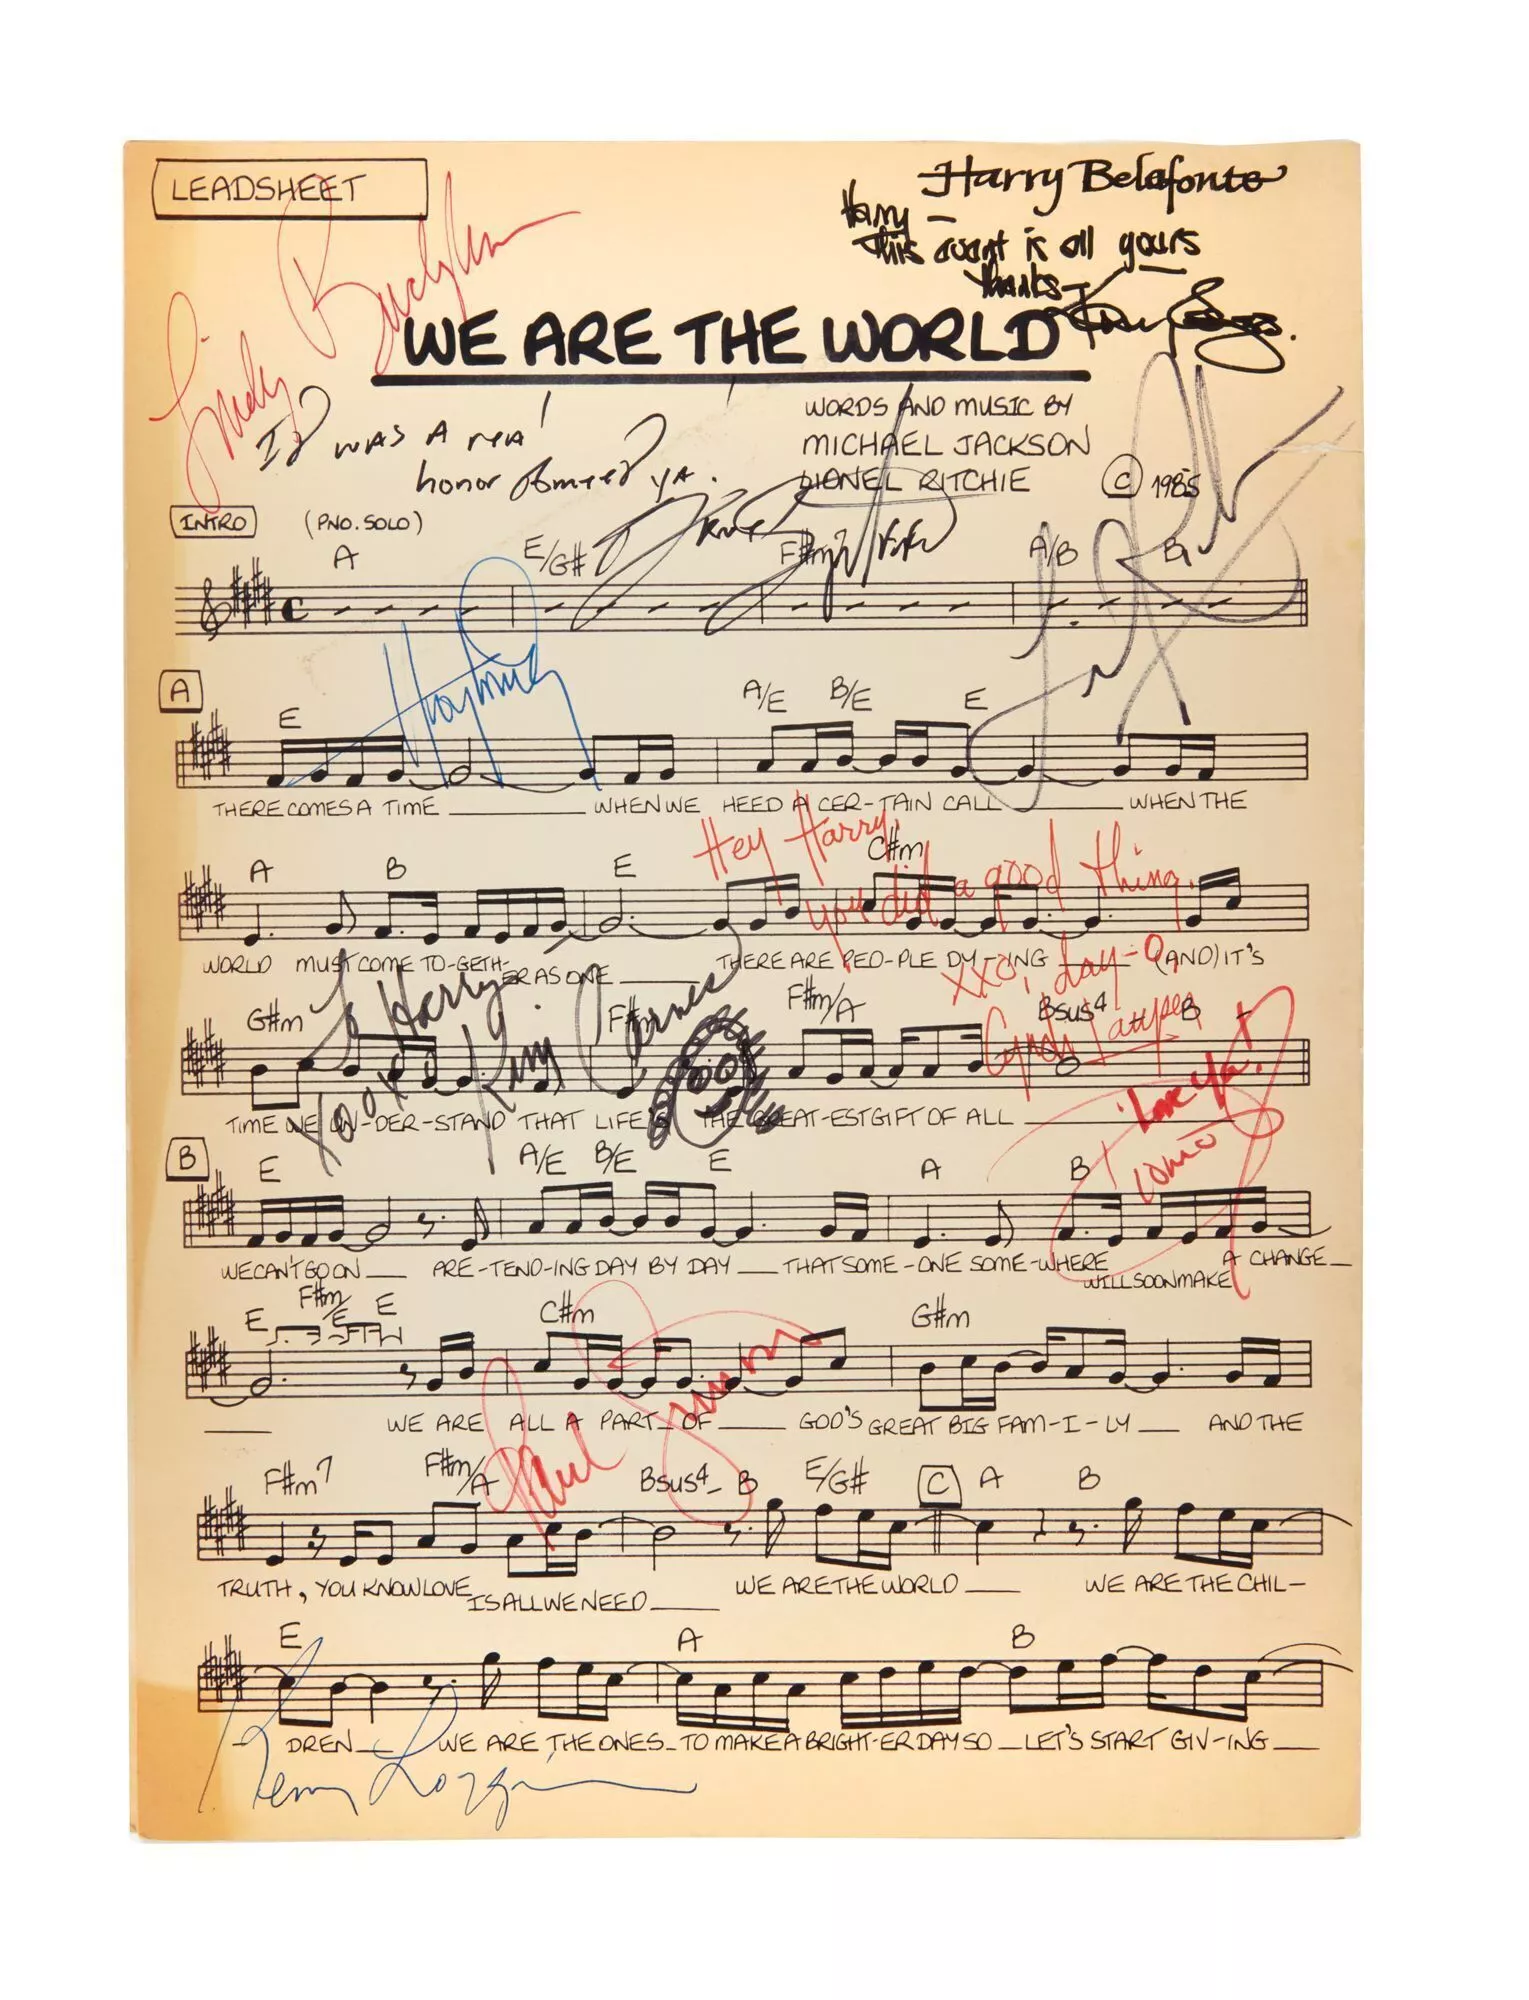 LEADSHEET
Harry Belafonte
Harry —
this event is all yours
thanks —
Lindy Buckingham
WE ARE THE WORLD
WORDS AND MUSIC BY
MICHAEL JACKSON
LIONEL RITCHIE © 1985
It was a real
honor to meet ya.
INTRO (PNO. SOLO)
A E/G# F#m7 A/B B
A
E A/E B/E E
THERE COMES A TIME ___ WHEN WE HEED A CER-TAIN CALL ___ WHEN THE
Hey Harry,
you did a good thing.
xxo, day-O,
Cyndi Lauper
A B E C#m
WORLD MUST COME TO-GETH-ER AS ONE ___ THERE ARE PEO-PLE DY-ING ___ (AND) IT'S
To Harry
xooxo Kim Carnes
G#m F#m F#m/A Bsus4 B
TIME WE UN-DER-STAND THAT LIFE'S THE GREAT-EST GIFT OF ALL ___
I Love Ya!
B
E A/E B/E E A B
WE CAN'T GO ON ___ PRE-TEND-ING DAY BY DAY ___ THAT SOME-ONE SOME-WHERE WILL SOON MAKE A CHANGE _
E F#m/E E C#m G#m
___ WE ARE ALL A PART _ OF ___ GOD'S GREAT BIG FAM-I-LY ___ AND THE
Paul Simon
F#m7 F#m/A Bsus4 _ B E/G# C A B
TRUTH, YOU KNOW LOVE IS ALL WE NEED ___ WE ARE THE WORLD ___ WE ARE THE CHIL-
E A B
- DREN ___ WE ARE THE ONES _ TO MAKE A BRIGHT-ER DAY SO _ LET'S START GIV-ING ___
Kenny Loggins